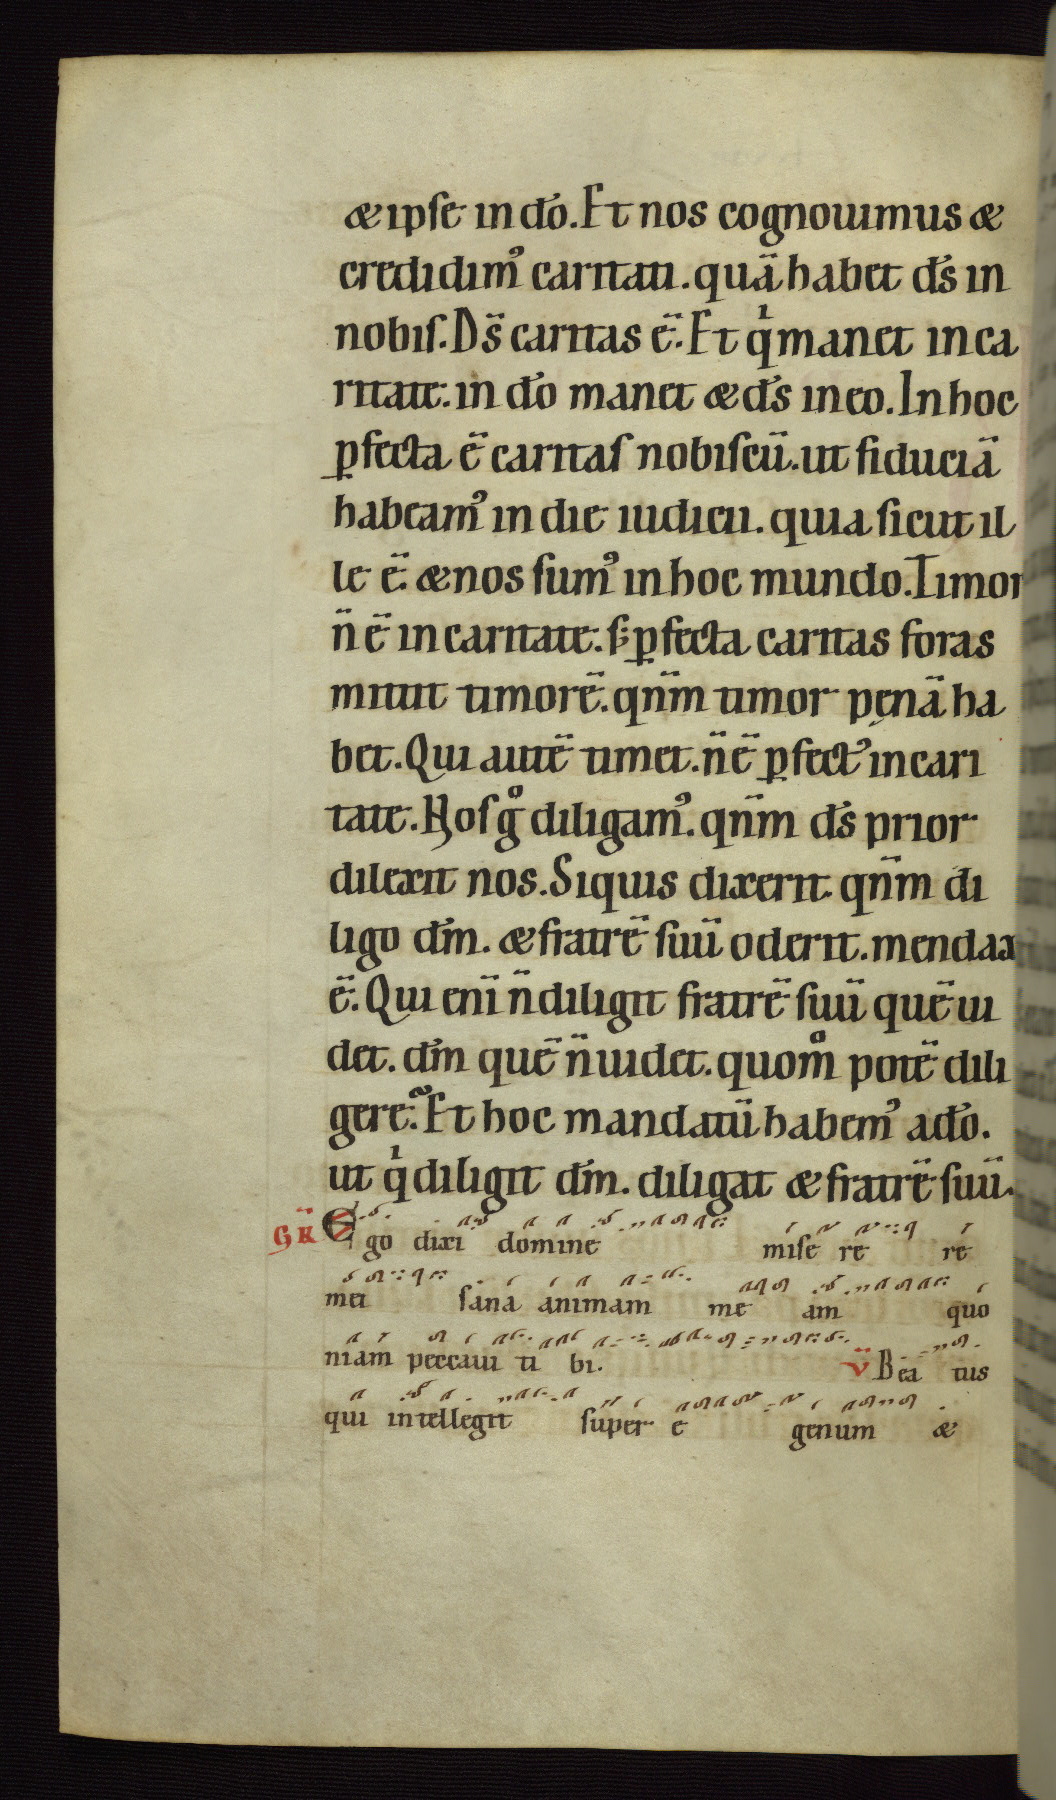 & ipse in dō. Et nos cognouimus &
credidimꝰ caritati. quā habet ds̄ in
nobis. Ds̄ caritas ē. Et qͥ manet in ca
ritate: in dō manet & ds̄ in eo. In hoc
ꝑfecta ē caritas nobiscū. ut fiduciā
habeamꝰ in die iudicii. quia sicut il
le ē. & nos sumꝰ in hoc mundo. Timor
n̄ ē in caritate. s; ꝑfecta caritas foras
mittit timorē. qnm̄ timor pęnā ha
bet. Qui autē timet. n̄ ē ꝑfectꝰ in cari
tate. Nos gͦ diligamꝰ. qnm̄ ds̄ prior
dilexit nos. Si quis dixerit qnm̄ di
ligo dm̄. & fratrē suū oderit. mendax
ē. Qui enī n̄ diligit fratrē suū quē ui
det. dm̄ quē n̄ uidet. quomͦ potē dili
gere? Et hoc mandatū habemꝰ a dō.
ut qͥ diligit dm̄. diligat & fratrē suū.
GR̄ Ego dixi domine mise re re
mei sana animam me am quo
niam peccaui ti bi. V̄ Bea tus
qui intellegit super e genum &